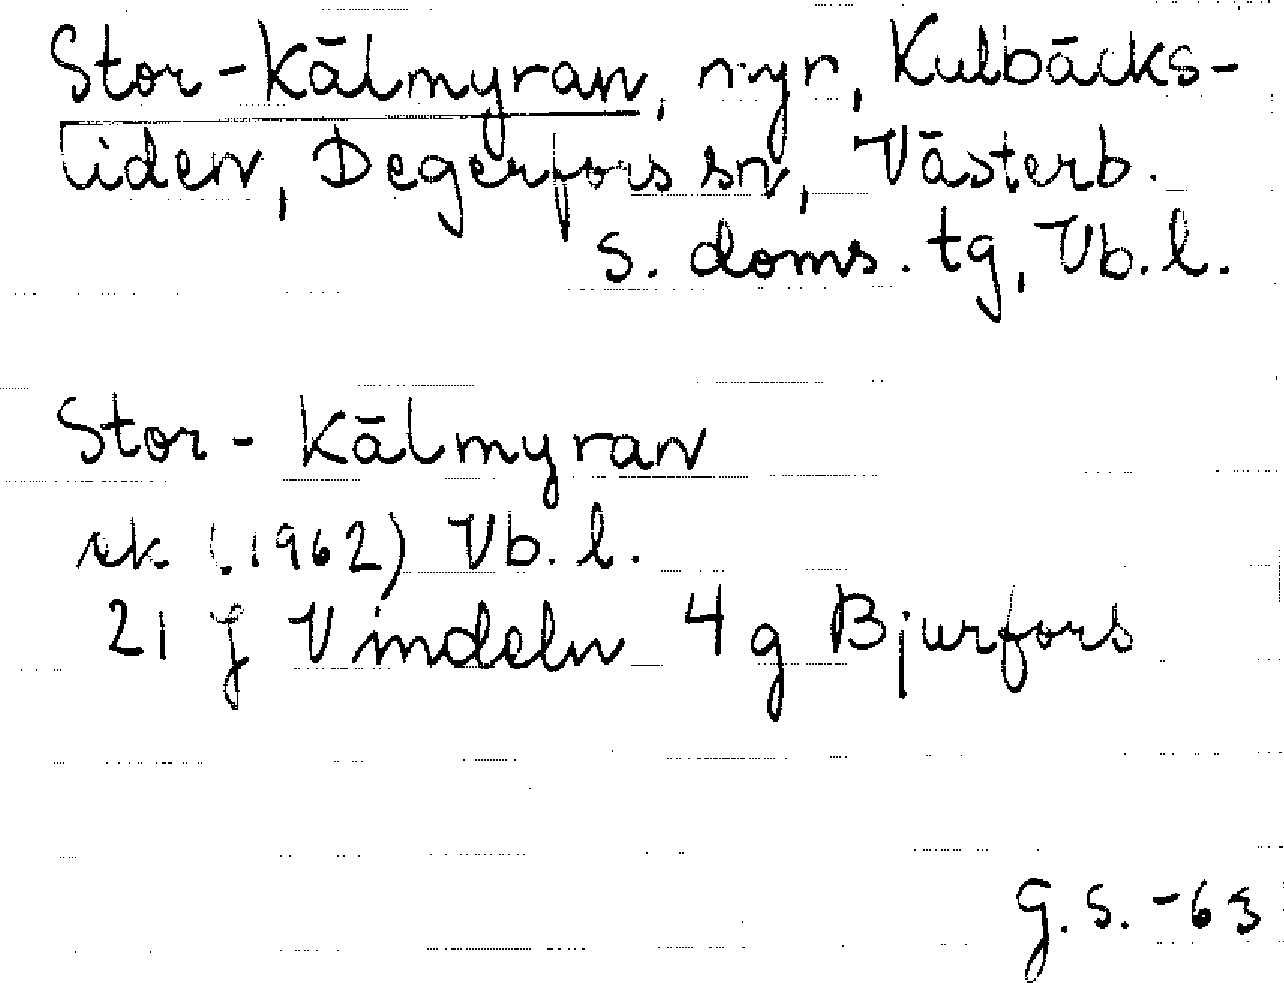 Stor-Kälmyran, myr, Kulbäcks-
liden, Degerfors sn, Västerb.
s. doms. tg, Vb. l.
Stor-Kälmyran
rk (1962) Vb. l.
21 J Vindeln 4 g Bjurfors
G. S. -63